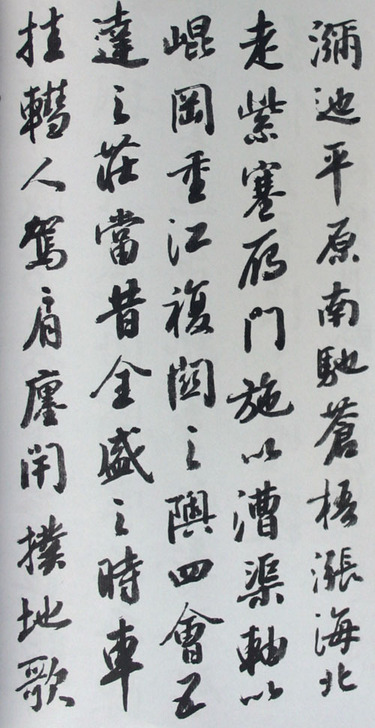 瀰迆平原南馳蒼梧漲海北
走紫塞雁門施以漕渠軸以
崐岡重江複關之隩四會五
達之莊當昔全盛之時車
挂轊人駕肩廛閈撲地歌